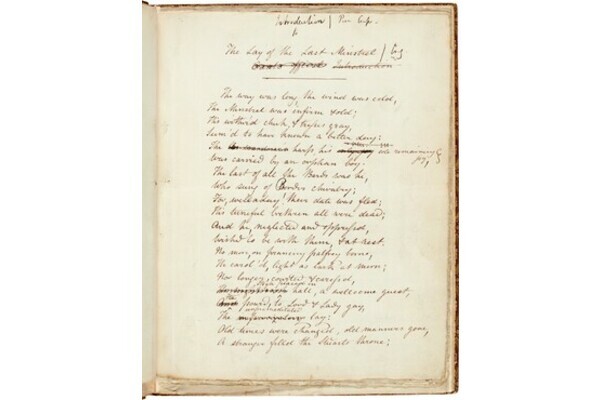 Introduction / Pica Caps.
to
The Lay of the Last Minstrel /
Canto Introduction
The way was long, the wind was cold,
The Minstrel was infirm & old;
His withered cheek, & tresses gray,
Seem'd to have known a better day:
The harp, his sole remaining joy,
Was carried by an orphan boy.
The last of all the Bards was he,
Who sung of Border chivalry;
For, weladay! their date was fled;
His tuneful brethren all were dead;
And he, neglected and oppressed,
Wished to be with them, & at rest.
No more, on prancing palfrey borne,
He carol'd, light as lark at morn;
No longer, courted & caressed,
High placed in hall, a welcome guest,
He pour'd, to Lord & Lady gay,
The unpremeditated lay:
Old times were changed, old manners gone,
A stranger filled the Stuarts throne;